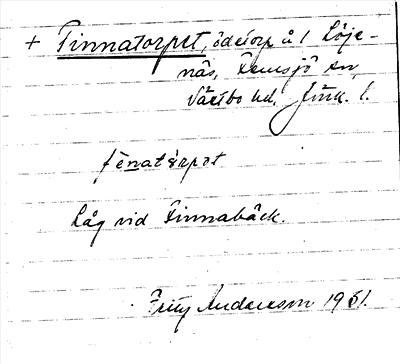 + Finnatorpet, ödetorp å 1 Löje-
näs, Femsjö sn,
Västbo hd, Jönk. l.
fenatårpet
Låg vid Finnabäck.
Fritz Andersson 1951.